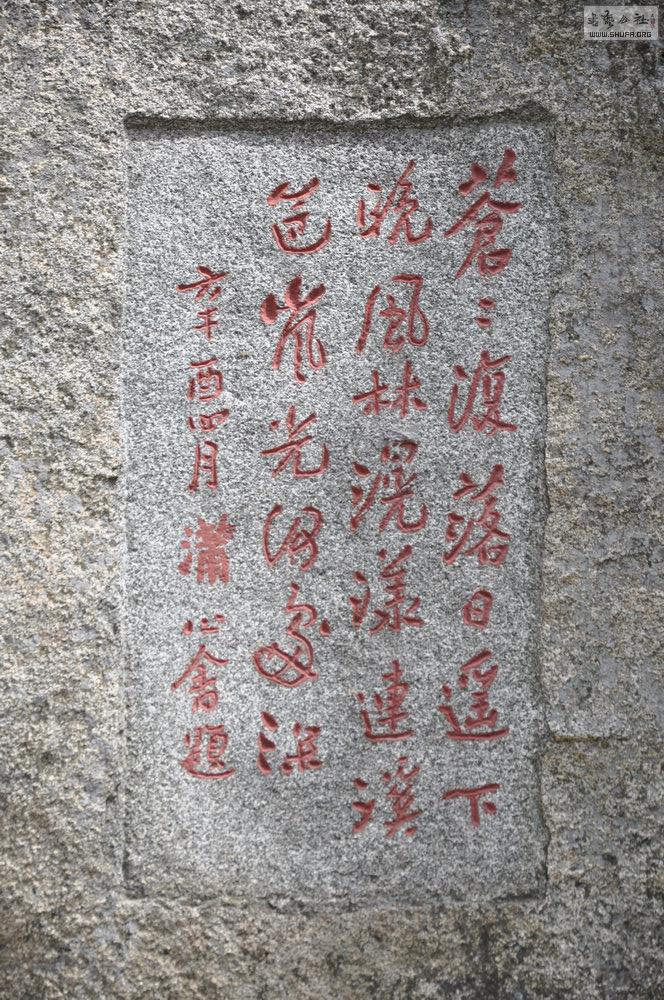 蒼〻復落日遥下
晚風林滉漾連溪
色嵐光何處深
辛酉四月 溥心畬題
書藝公社
WWW.SHUFA.ORG